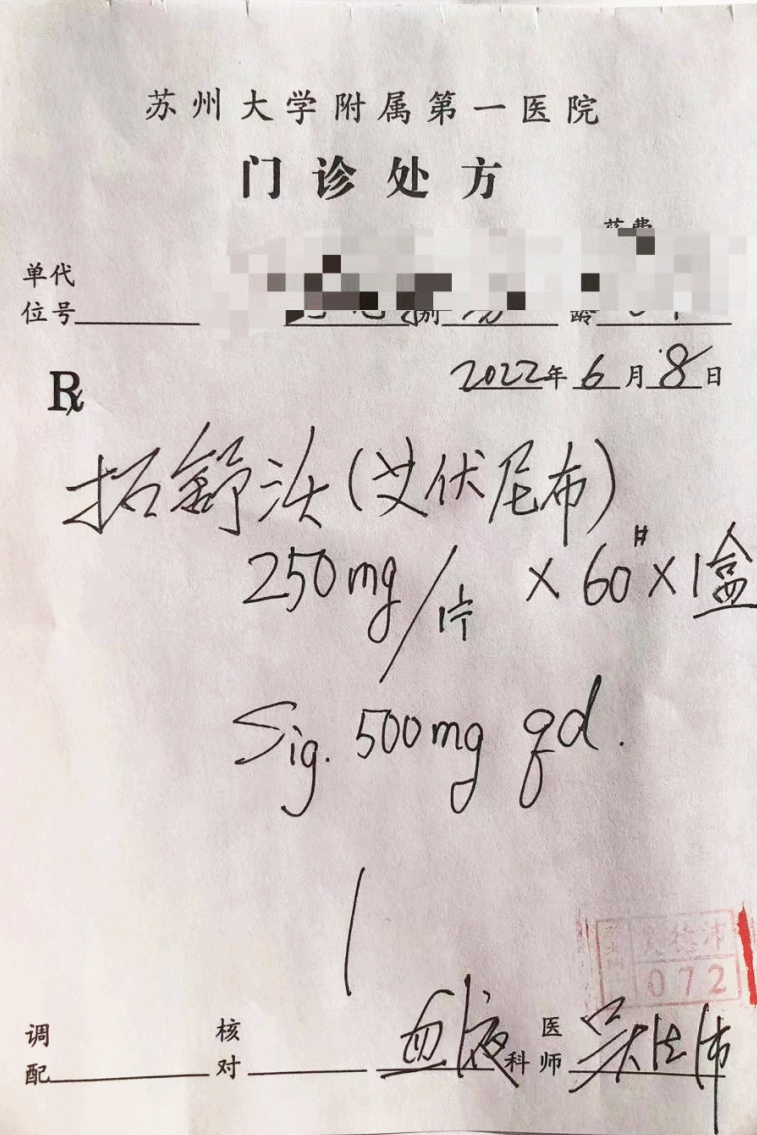 苏州大学附属第一医院
门诊处方
药费
单位代号
别 龄
2022年6月8日
Rx
拓舒沃(艾伏尼布)
250mg/片 ×60#×1盒
Sig. 500mg qd.
072
调配 核对 血液科 医师 吴德沛